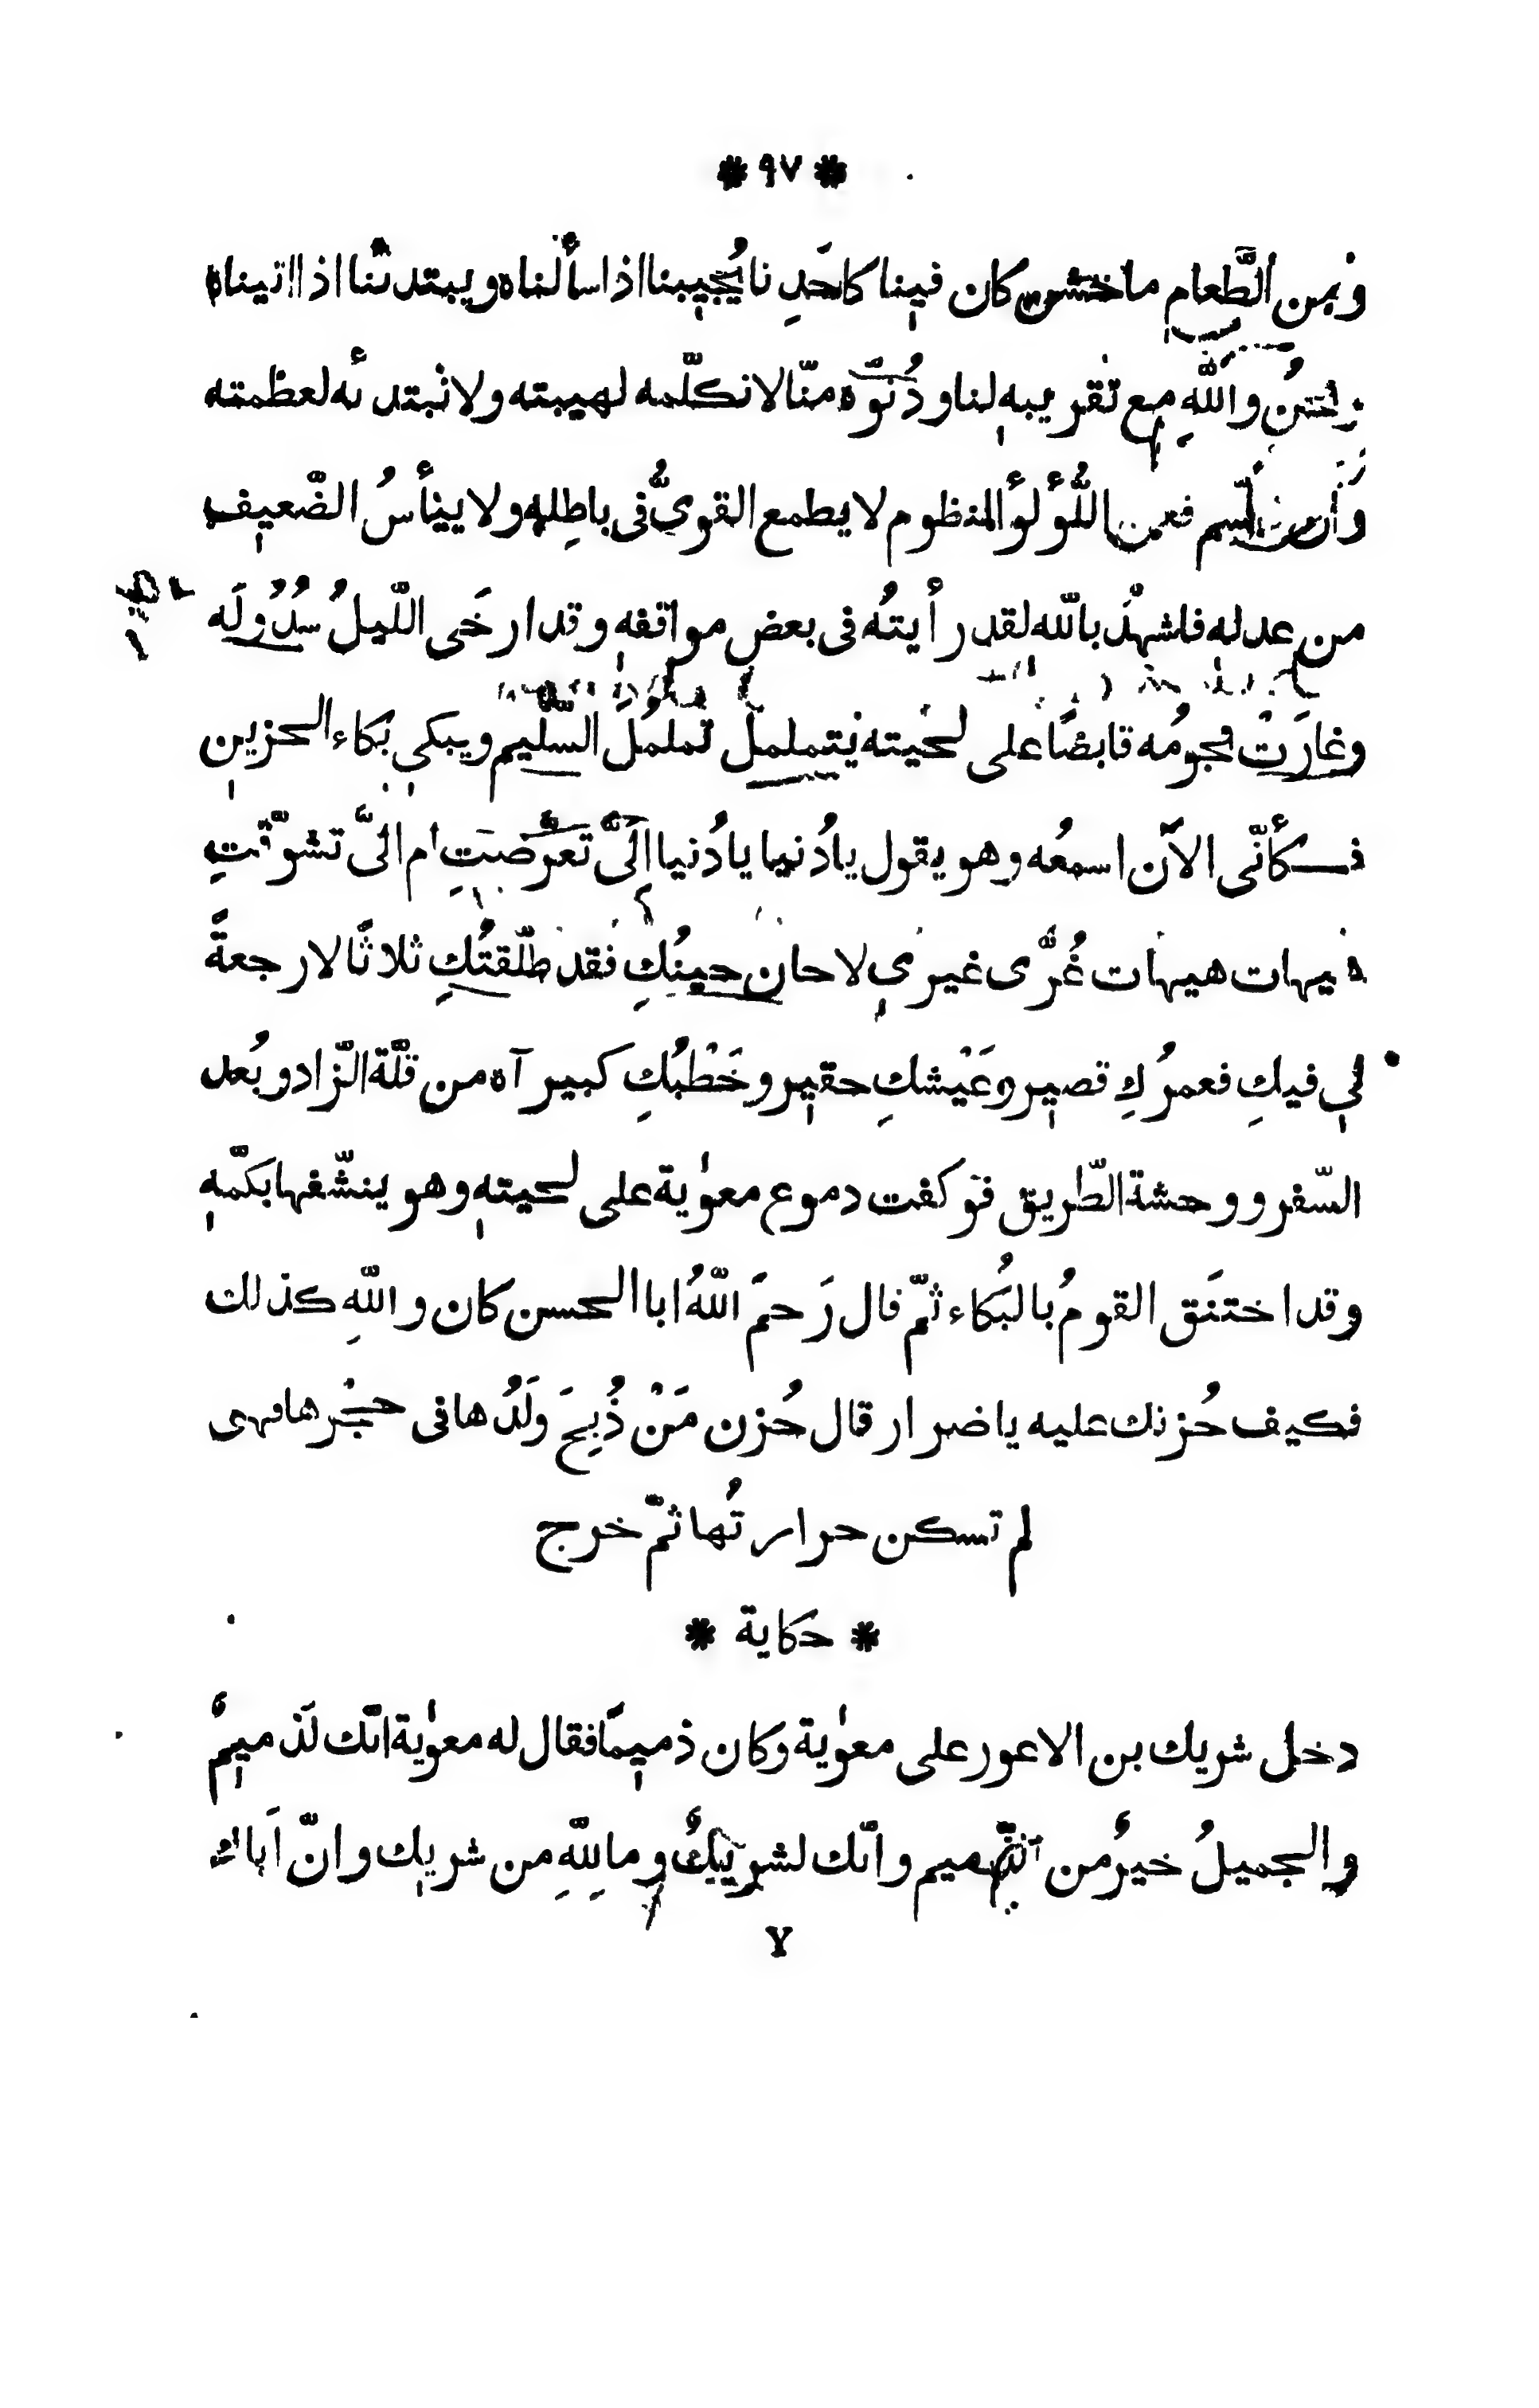 * ٩٧ *
ومن الطَّعامِ ما خشن كان فينا كاحَدِنا يُجيبنا اذا سألناه ويبتدئنا اذا اتيناه
ونحنُ واللّٰهِ مع تقريبهِ لنا ودُنوّه منّا لا نكلّمه لهيبته ولا نبتدئه لعظمته
وَان تبسم فعن اللُّؤلُؤ المنظوم لا يطمع القوىُّ فى باطِلهِ ولا ييأسُ الضّعيف
من عدلهِ فاشهَدُ باللّٰه لقد رأيتُه فى بعض مواقفهِ وقد ارخَى اللّيلُ سُدُولَه
وغارَتْ نجومُه قابضًا على لحيته يتململُ تململُ السّليم ويبكى بُكاء الحزين
فكأنّى الآن اسمعُه وهو يقول يا دُنيا يا دُنيا اِلىَّ تعرّضتِ ام الىَّ تشوّقتِ
هيهات هيهات غُرّى غيرى لا حان حينُكِ فقد طلّقتُكِ ثلاثًا لا رجعةً
لى فيكِ فعمرُكِ قصير وعَيْشكِ حقير وخَطْبُكِ كبير آه من قلّة الزّاد وبُعد
السّفر ووحشة الطّريق فوَكفت دموع معوٰية على لحيتهِ وهو ينشّفها بكمّهِ
وقد اختنَق القومُ بالبُكاء ثمّ قال رَحمَ اللّٰهُ ابا الحسن كان واللّٰهِ كذلك
فكيف حُزنك عليه يا ضرار قال حُزن مَنْ ذُبِحَ ولَدُها فى حجْرها فهى
لم تسكن حرارتُها ثمّ خرج
* حكاية *
دخل شريك بن الاعور على معوٰية وكان ذميمًا فقال له معوٰية انّك لَذميمٌ
والجميلُ خيرٌ من الذّميم وانّك لشريكٌ وما لِلّٰهِ من شريك وانّ اَباك
٧